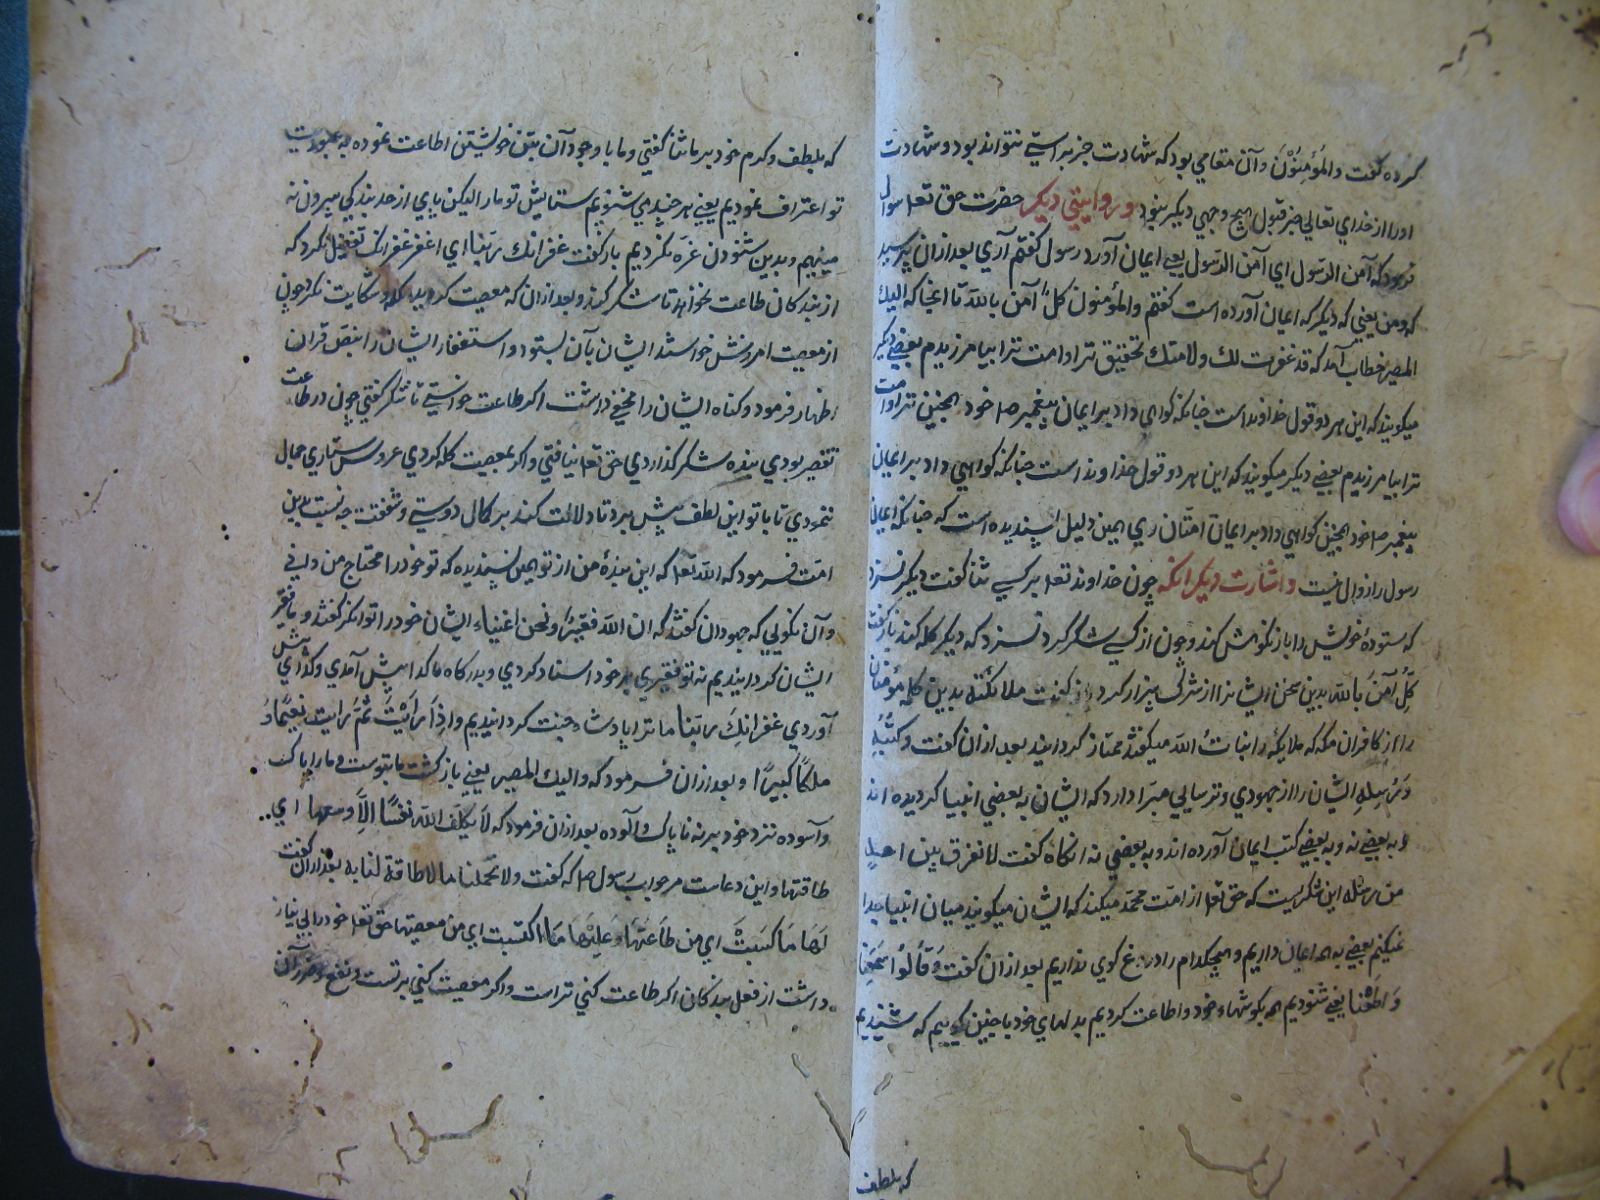 کرده گفت والمُؤمِنُوْنَ وآن مقامی بود که شهادت جز براستی نتواند بود و شهادت
اورا از خدای تعالی جز قبول هیچ وجهی دیگر نبود و روایتی دیگر حضرت حق تعا سوال
فرمود که آمن الرّسول ای آمن الرّسول یعنی ایمان آورد رسول گفتم آری بعد ازان پرسید
که ومن یعنی که دیگر که ایمان آورده است گفتم والمؤمنون کلٌ آمن باللّه تا انجا که الیك
المصیر خطاب آمد که قد غفرت لك ولامتك بتحقیق ترا و امت ترا بیامرزیدم بعضی دیگر
میگویند که این هر دو قول خداوند است چنانکه گواهی داد بر ایمان پیغمبر ص خود همچنین ترا و امت
ترا بیامرزیدم بعضی دیگر میگویند که این هر دو قول خداوند است چنانکه گواهی داد بر ایمان
پیغمبر ص خود همچنین گواهی داد بر ایمان امّتان وی همین دلیل پسندیده است که چنانکه ایمان
رسول را زوال نیست و اشارت دیگر آنکه چون خداوند تعا بر کسی ثنا گفت دیگر نسزد
که ستودهٔ خویش را باز نکوهش کند و چون از کسی شکر کرد نسزد که دیگر گله کند باز گفت
کُلٌّ آمَنَ باللّه بدین سخن ایشانرا از شرك بیزار کرد باز گفت ملائکته بدین کلمه مؤمنان
را از کافران مکه که ملایکه را بنات اللّه میگفتند ممتاز گردانید بعد ازان گفت وکُتُبِهِ
وَرُسِلِهِ ایشان را از جهودی و ترسایی مبرّا دارد که ایشان به بعضی انبیا گرویده اند
و به بعضی نه و به بعضی کتب ایمان آورده اند و به بعضی نه انگاه گفت لا نفرق بین احدٍ
من رسله این شکریست که حق تعا از امّت محمّد میکند که ایشان میگویند میان انبیا جدا
نمیکنیم بعضی به همه ایمان داریم و هیچکدام را دروغ گوی نداریم بعد ازان گفت وَقَالُوْا سَمِعْنَا
وَاَطَعْنَا یعنی شنودیم همه بگوشهاء خود و اطاعت کردیم بدلهای خود یا چنین گوییم که شنیدیم
که بلطف
که بلطف وکرم خود بر ما ثنا گفتی و ما با وجود آن بتن خویشتن اطاعت نموده به عبودیت
تو اعتراف نمودیم یعنی هر چندی شنویم ستایش تو مارا لیکن پای از حد بندگی بیرون نه
مینهیم و بدین شنودن غرّه نگردیم باز گفت غفرانك ربّنا ای اغفر غفرانك تفضیل نکرد که
از بندگان طاعت بخواهد تا شکر کند و بعد ازان که معصیت کردید گله و شکایت نکرد چون
از معصیت امرزش خواستند ایشان بآن بستود و استغفار ایشان را بنصّ قرآن
اظهار فرمود و گناه ایشان را مخفی داشت اگر طاعت خواستی تا شکر گفتی چون در طاعت
تقصیر بودی بنده شکر گذاردی حق تعا نیافتی و اگر بمعصیت گله کردی عروس ستاری جمال
ننمودی تا با تو این لطف پیش برد تا دلالت کند بر کمال دوستی و شفقت چه نسبت بدین
امّت فرمود که اللّه تعا که این بندهٔ من از تو همین پسندیده که تو خود را محتاج من دانی
و آن نگویی که جهودان گفتند که ان اللّه فقیرٌ ونحن اغنیاء ایشان خود را توانگر گفتند و ما فقر
ایشان گردانیدیم نه تو فقیری بر خود اسناد کردی و بدرگاه ما گدا پیش آمدی و گدائی پیش
آوردی غفرانِكَ ربّنا ما ترا پادشاه جنت گردانیدیم وَاِذَا رَاَیْتَ ثَمَّ رایت نَعِیْمًا وَ
ملکًا کبیرًا و بعد ازان فرمود که والیك المصیر یعنی بازگشت ما بتوست و ما را پاك
و آسوده نزد خود بر نه ناپاك و الوده بعد ازان فرمود که لاَ یکلّف اللّه نفسًا الاّ وسعها ای
طاقتها و این دعاست مر جواب رسول ص که گفت ولا تحملنا ما لا طاقة لنا به بعد ازان گفت
لَهَا مَا کَسَبَتْ ای من طَاعَتِهَا وَعَلَیْهَا مَا اکتسبت ای من معصیتها حق تعا خود را بی نیاز
داشت از فعل بندگان اگر طاعت کنی تراست و اگر معصیت کنی برتست و نفع و ضرر آن